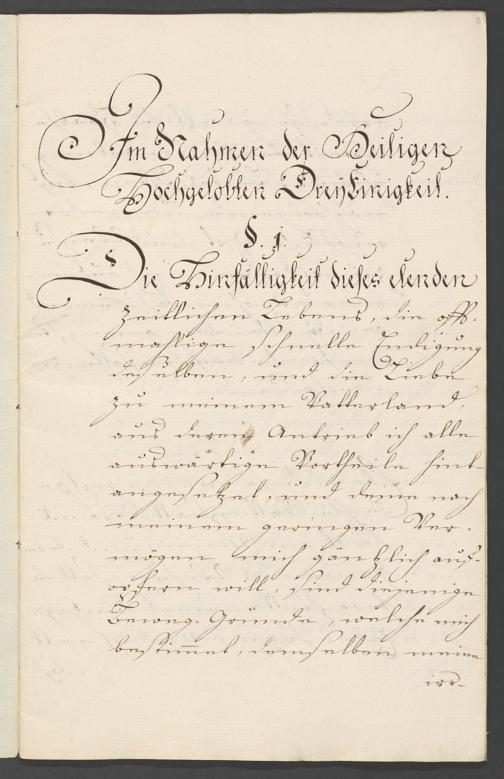 Im Nahmen der Heiligen
Hochgelobten Dreyeinigkeit.
§. 1.
Die Hinfälligkeit dieses elenden
zeitlichen Lebens, die offt-
mahlige schnelle Endigung
desselben, und die Liebe
zu meinem Vatterland,
aus deren Antrieb ich alle
auswärtige Vortheile hint-
angesetzet, und deme nach
meinem geringen Ver-
mögen mich gäntzlich auf-
opffern will, sind diejenige
Beweg-Gründe, welche mich
bestimmet, demselben meine
irr-